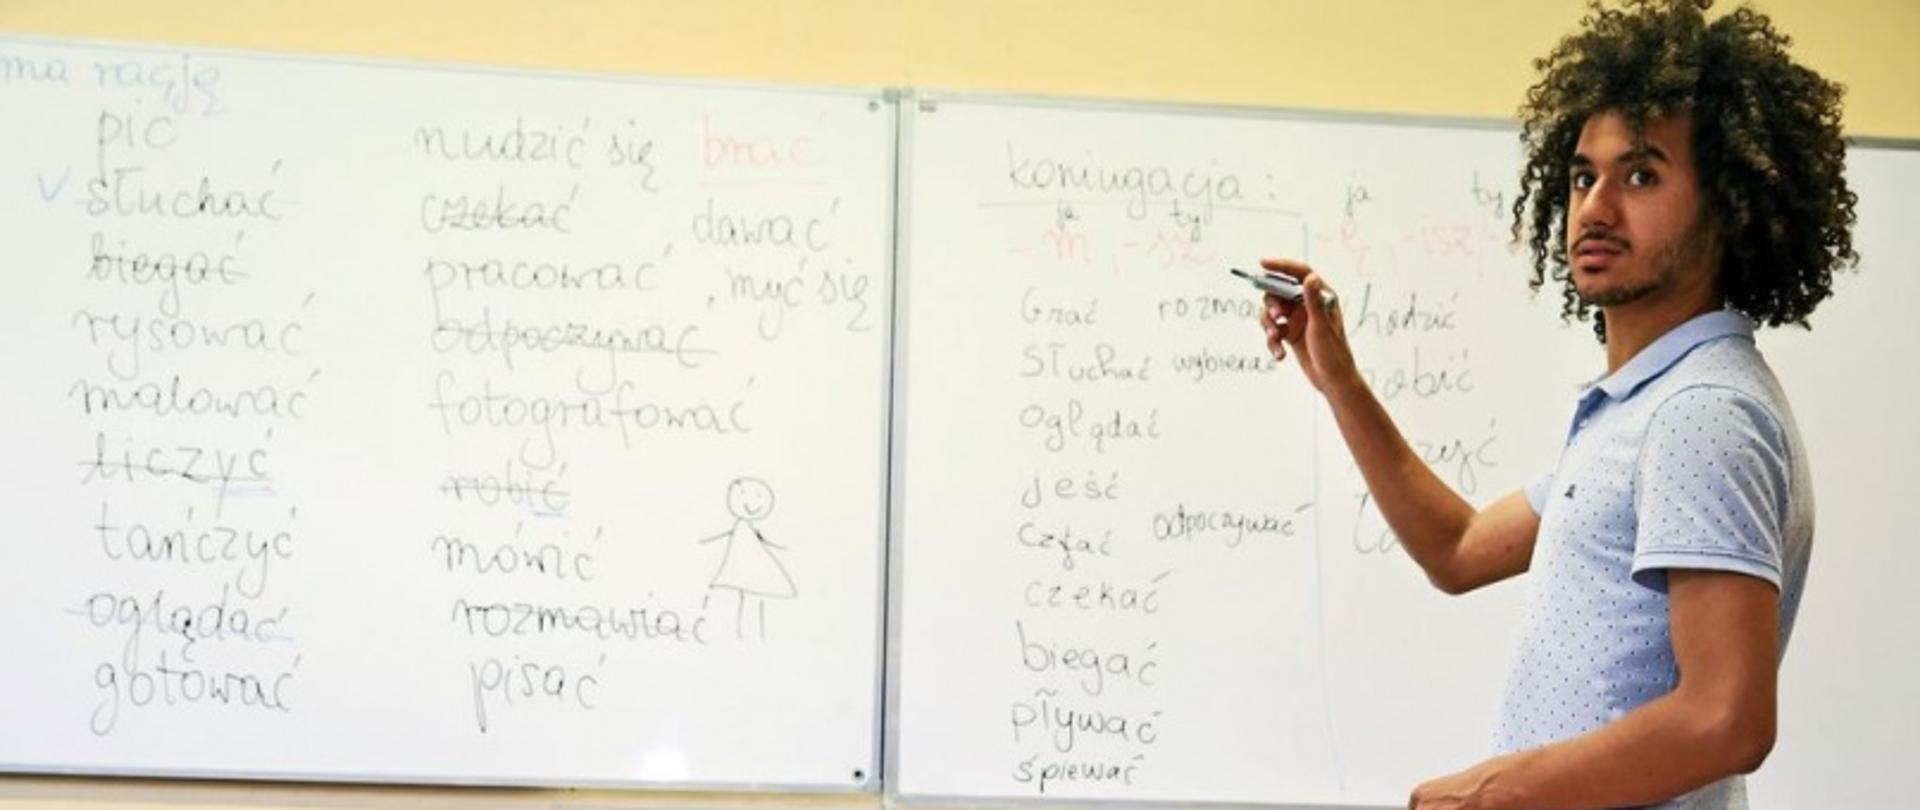 ma rację
pić
słuchać
biegać
rysować
malować
liczyć
tańczyć
oglądać
gotować
nudzić się
czekać
pracować
odpoczywać
fotografować
robić
mówić
rozmawiać
pisać
brać
dawać
myć się
koniugacja:
ja ty
-m, -sz
Grać
Słuchać wybierać
Oglądać
jeść
odpoczywać
czekać
biegać
pływać
śpiewać
ja ty
-ę, -isz